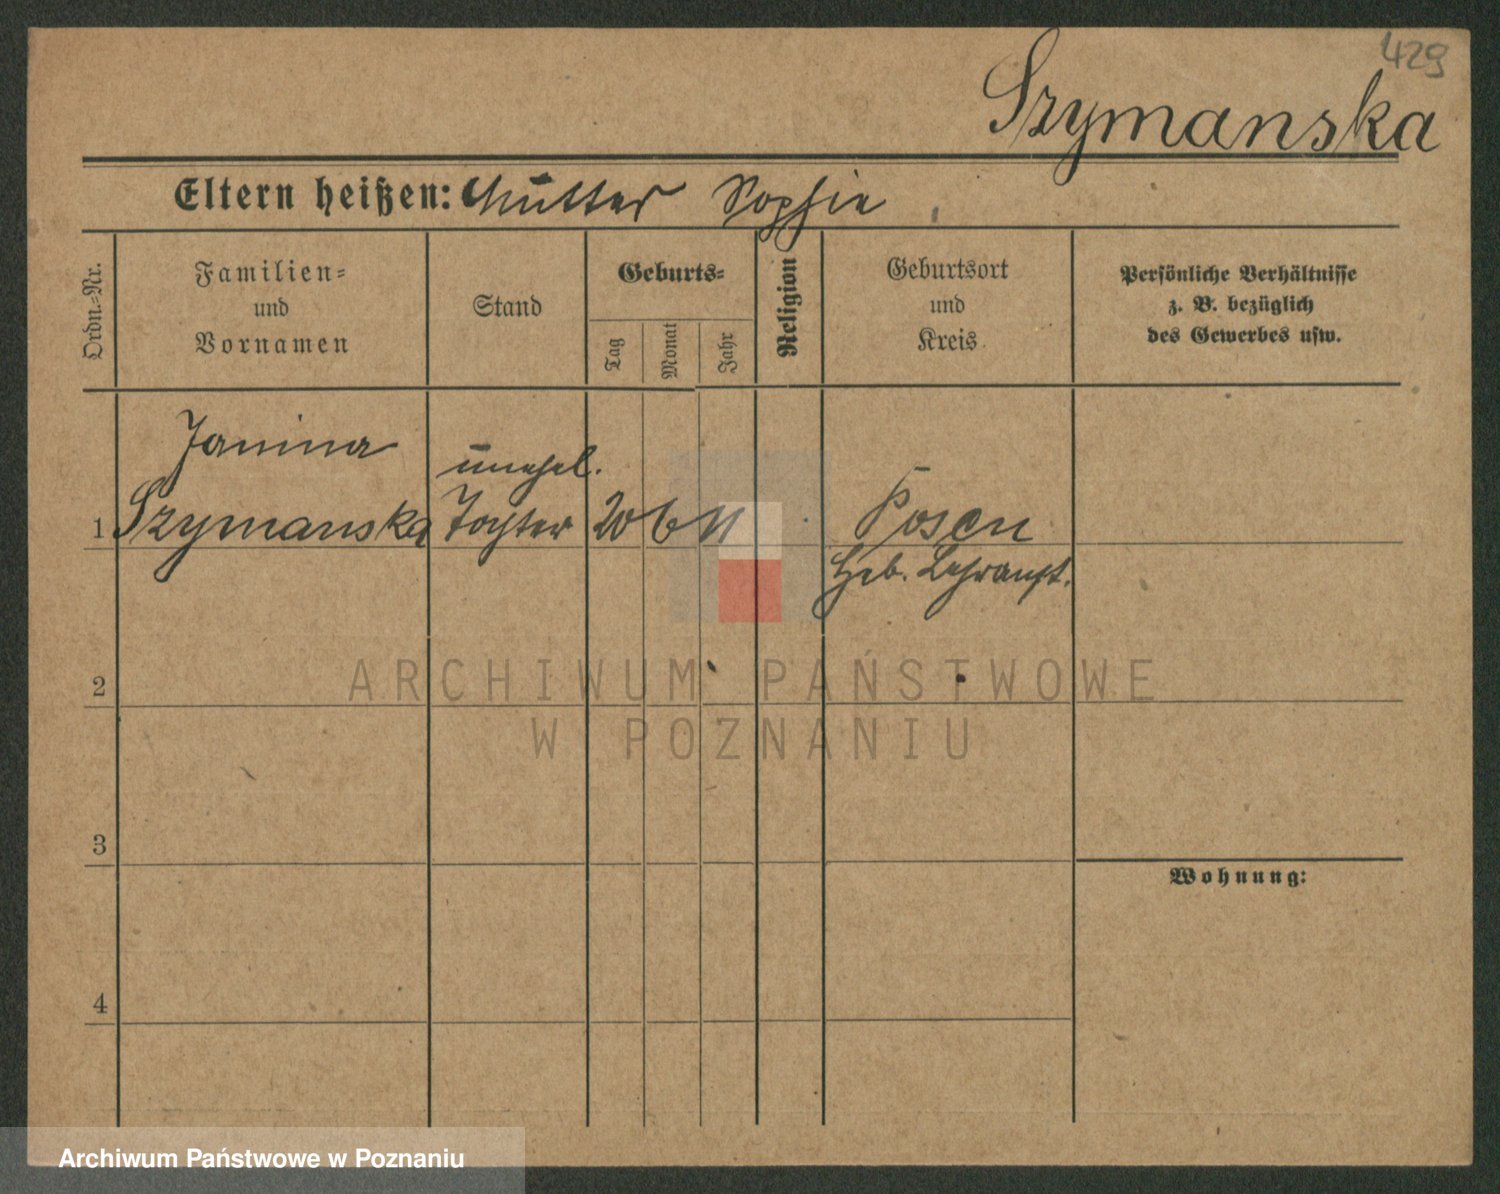 429
Szymanska
Eltern heißen: Mutter Sophie
Ordn.=Nr.
Familien=
und
Vornamen
Stand
Geburts=
Tag
Monat
Jahr
Religion
Geburtsort
und
Kreis
Persönliche Verhältnisse
z. B. bezüglich
des Gewerbes usw.
Janina
unehel.
1 Szymanska Tochter 20 6 11 Posen
Heb. Lehranst.
2
ARCHIWUM PAŃSTWOWE
W POZNANIU
3
Wohnung:
4
Archiwum Państwowe w Poznaniu